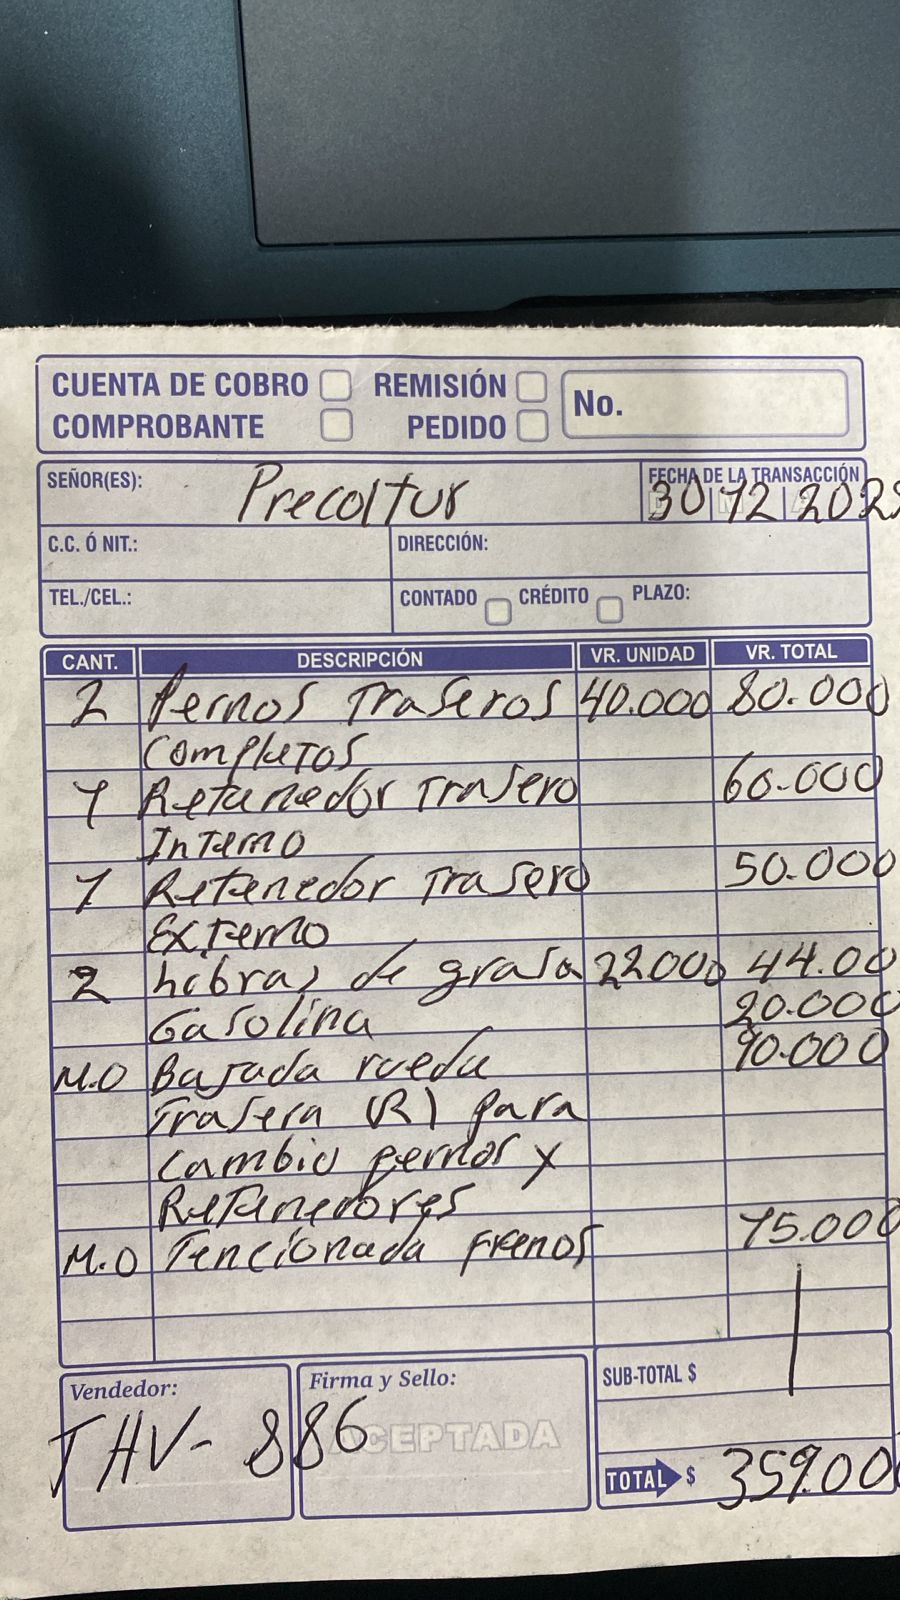 CUENTA DE COBRO REMISIÓN No.
COMPROBANTE PEDIDO
SEÑOR(ES): Precoltur FECHA DE LA TRANSACCIÓN
30 12
C.C. Ó NIT.: DIRECCIÓN:
TEL./CEL.: CONTADO CRÉDITO PLAZO:
CANT. DESCRIPCIÓN VR. UNIDAD VR. TOTAL
2 Pernos Traseros 40.000 80.000
Completos
1 Retenedor Trasero 60.000
Interno
1 Retenedor Trasero 50.000
Externo
2 libras de grasa 22000 44.00
Gasolina 20.000
M.O Bajada rueda 90.000
Trasera (R) para
Cambio pernos y
Retenedores
M.O Tencionada frenos 15.000
Vendedor: Firma y Sello: SUB-TOTAL $
THV-886
ACEPTADA
TOTAL $ 359.000